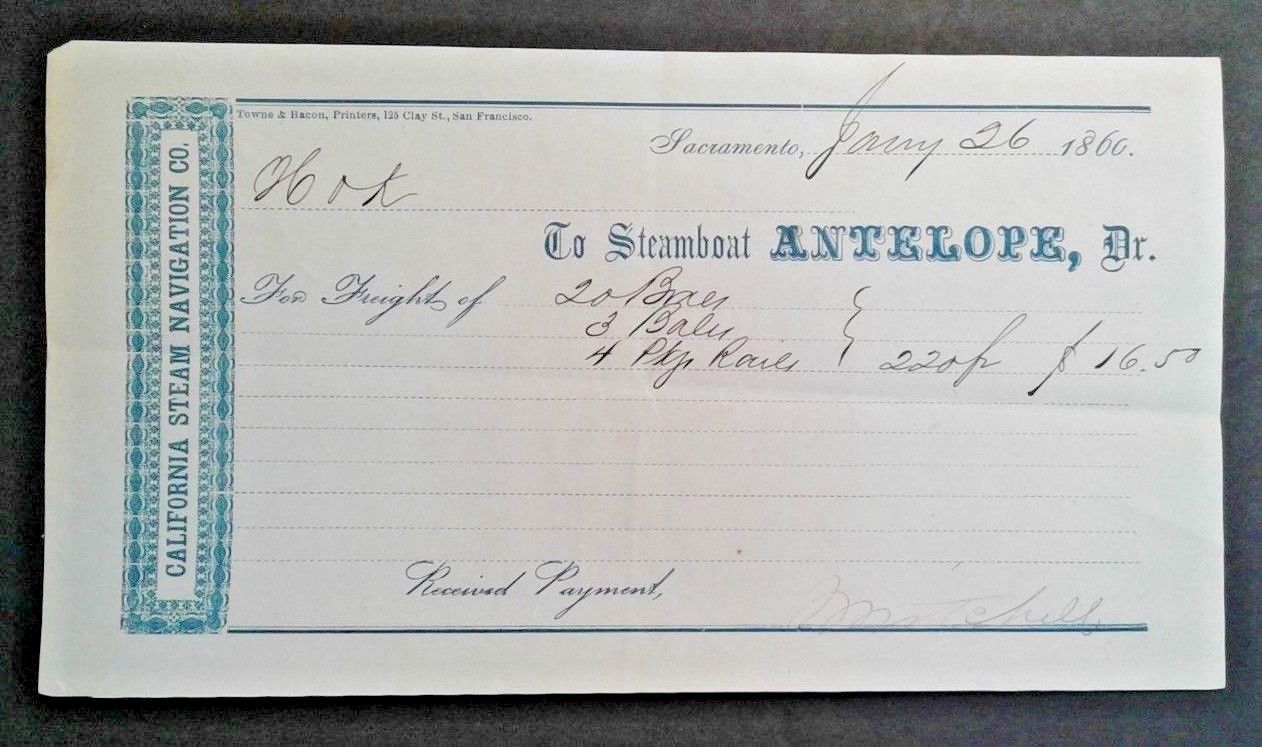 CALIFORNIA STEAM NAVIGATION CO.
Towne & Bacon, Printers, 125 Clay St., San Francisco.
Sacramento, Jany 26 1860.
H o K
To Steamboat ANTELOPE, Dr.
For Freight of 20 Boxes
3 Bales
4 Pkgs 220 ft $ 16.50
Received Payment,
Mitchell